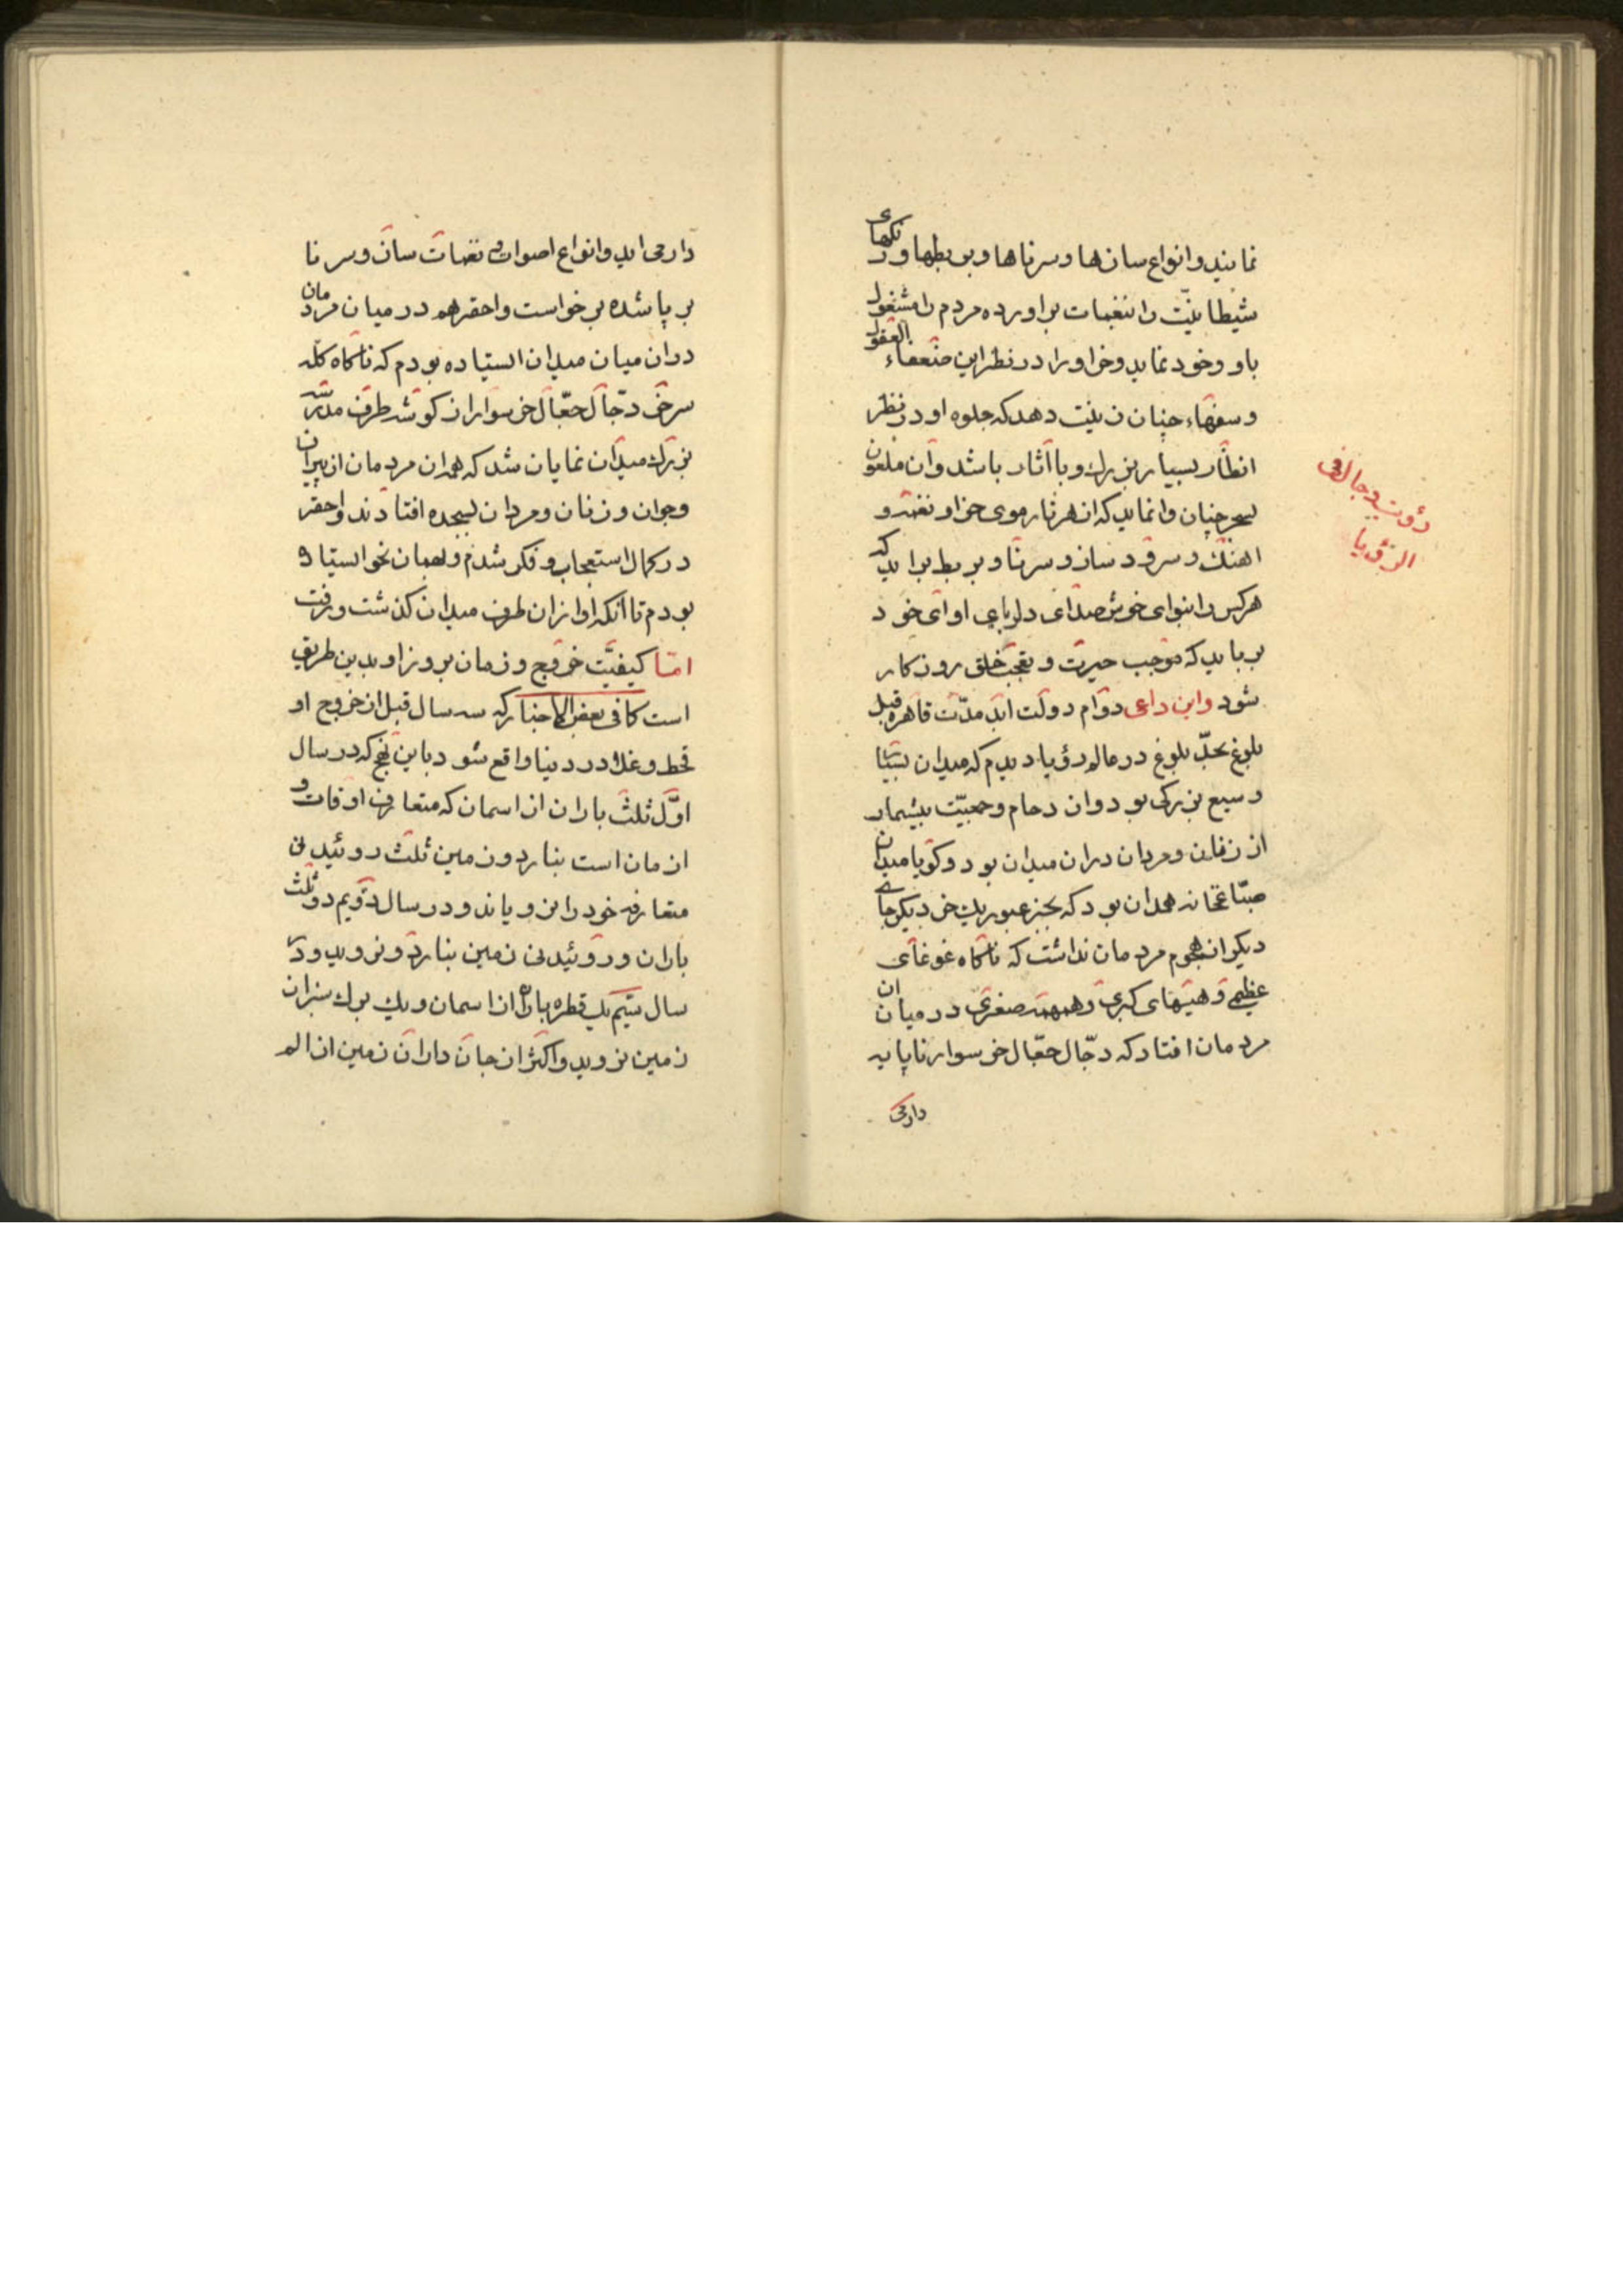 نمایند و انواع سازها و سرناها و بربطها و رنکهای
شیطانیت را بنغمات براورده مردم را مشغول
باو و خود نماید و خر او را در نظر این ضعفاء العقول
و سفهاء چنان زینت دهد که جلوه او در نظر
انظار بسیار بزرك و با آثار باشد و ان ملعون
بسحر چنان وانماید که از هر تار موی خر او نغمه و
اهنك و سرود ساز و سرنا و بربط براید که
هرکس را بنوای خوش صدای دلربای اوای خود
برباید که موجب حیرت و تعجب خلق روزکار
شود و این داعی دوام دولت ابد مدّت قاهره قبل
بلوغ بحدّ بلوغ در عالم رؤیا دیدم که میدان بسیار
وسیع بزرکی بود و ازدحام و جمعیّت بیشمار
از زنان و مردان دران میدان بود و کویا میدان
صبّاغخانه همدان بود که بجز عبور یك خر دیکر جای
دیکر از هجوم مردمان نداشت که ناکاه غوغای
عظیمی و هیهای کبری و همهمه صغری در میان ان
مردمان افتاد که دجّال حجّال خر سوار ناپایه
دارمی
رؤیت دجال فی
الرؤیا
دارمی اید و انواع اصوات و نغمات ساز و سرنا
بر پا شده برخواست و احقر هم در میان مردمان
دران میان میدان ایستاده بودم که ناکاه کله
سر خر دجّال حجّال خر سوار از کوشه طرف مدرسه
بزرك میدان نمایان شد که همه ان مردمان از پیران
و جوان و زنان و مردان بسجده افتادند و احقر
در کمال استعجاب و فکر شدم و بهمان نحو ایستاده
بودم تا آنکه او از ان طرف میدان کذشت و رفت
امّا کیفیّت خروج و زمان بروز او بدین طریق
است کما فی بعض الاخبار که سه سال قبل از خروج او
قحط و غلا در دنیا واقع شود باین نهج که در سال
اوّل ثلث باران از اسمان که متعارف اوقات و
ازمان است نبارد و زمین ثلث روئیدنی
متعارفه خود را نرویاند و در سال دویم دو ثلث
باران و روئیدنی زمین نبارد و نروید و در
سال سیّم یك قطره باران از اسمان و یك برك سبز از
زمین نروید و اکثر از جان داران زمین از الم